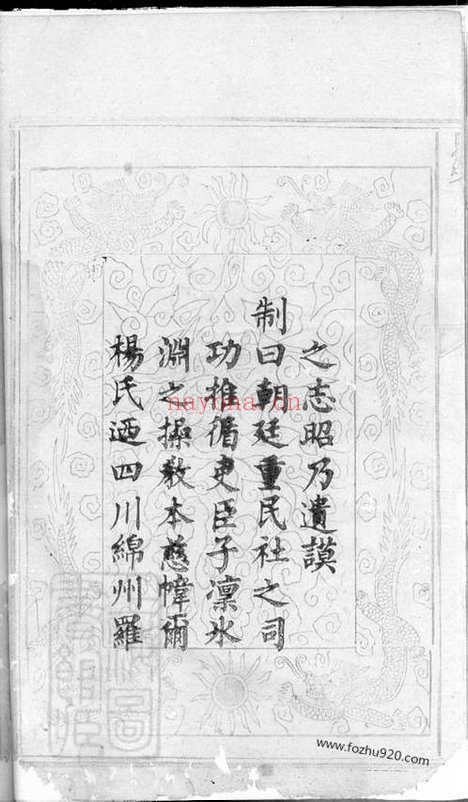 之志昭乃遺謨
制曰朝廷重民社之司
功推循吏臣子凜氷
淵之操教本慈幃爾
楊氏迺四川綿州羅
nayona.cn
www.fozhu920.com